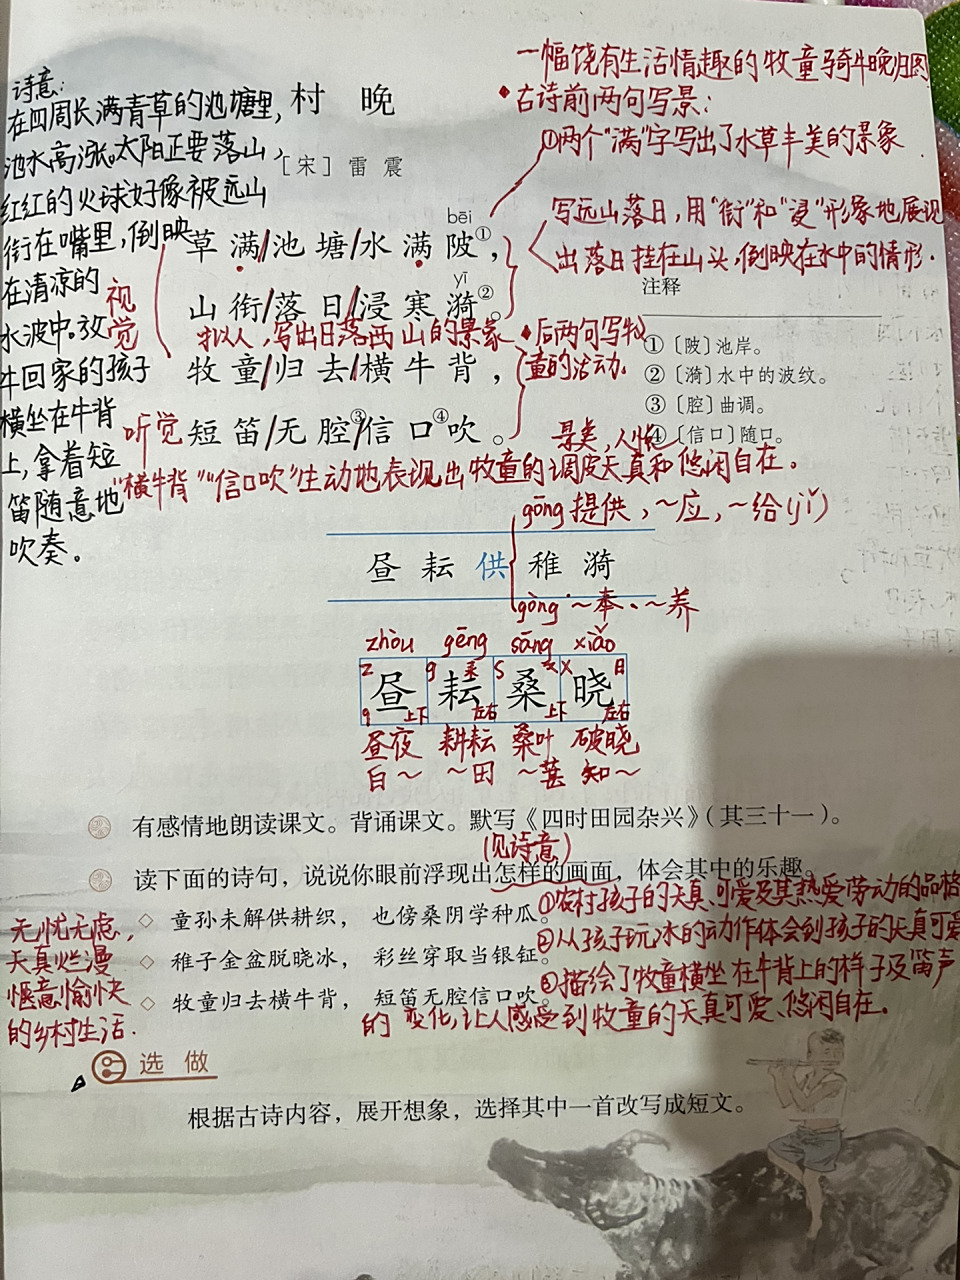 诗意:
在四周长满青草的池塘里,
池水高涨。太阳正要落山,
红红的火球好像被远山
衔在嘴里,倒映
在清凉的
水波中。放
牛回家的孩子
横坐在牛背
上,拿着短
笛随意地
吹奏。
村 晚
[宋] 雷 震
一幅饶有生活情趣的牧童骑牛晚归图
古诗前两句写景:
①两个“满”字写出了水草丰美的景象
写远山落日,用“衔”和“浸”形象地展现
出落日挂在山头,倒映在水中的情形.
bēi
草满/池塘/水满陂①,
yī
山衔/落日/浸寒漪②。
拟人,写出日落西山的景象
视觉
牧童/归去/横牛背,
后两句写牧
童的活动.
听觉
短笛/无腔③/信口④吹。
“横牛背”“信口吹”生动地表现出牧童的调皮天真和悠闲自在。
注释
①〔陂〕池岸。
②〔漪〕水中的波纹。
③〔腔〕曲调。
④〔信口〕随口。
gōng 提供,~应,~给(jǐ)
昼 耘 供 稚 漪
gòng ~奉、~养
zhòu gēng sāng xiǎo
昼 耘 桑 晓
上下 左右 上下 左右
昼夜 耕耘 桑叶 破晓
白~ ~田 ~葚 知~
有感情地朗读课文。背诵课文。默写《四时田园杂兴》(其三十一)。
(见诗意)
读下面的诗句,说说你眼前浮现出怎样的画面,体会其中的乐趣。
◇ 童孙未解供耕织, 也傍桑阴学种瓜。
①农村孩子的天真可爱及其热爱劳动的品格
◇ 稚子金盆脱晓冰, 彩丝穿取当银钲。
②从孩子玩冰的动作体会到孩子的天真可爱
◇ 牧童归去横牛背, 短笛无腔信口吹。
③描绘了牧童横坐在牛背上的样子及笛声
的变化,让人感受到牧童的天真可爱、悠闲自在。
无忧无虑,
天真烂漫
惬意愉快
的乡村生活.
选 做
根据古诗内容,展开想象,选择其中一首改写成短文。